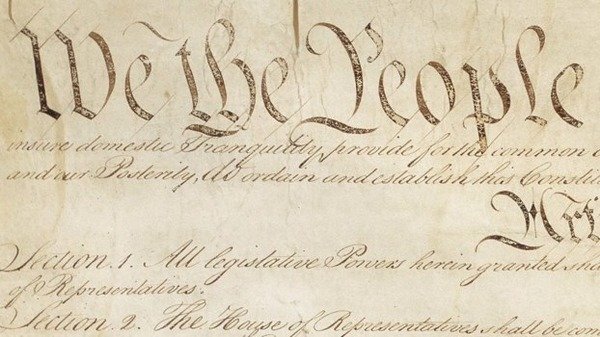 We the People
insure domestic Tranquility, provide for the common
and our Posterity, do ordain and establish this Constit
Art
Section. 1. All legislative Powers herein granted sha
of Representatives.
Section. 2. The House of Representatives shall be com